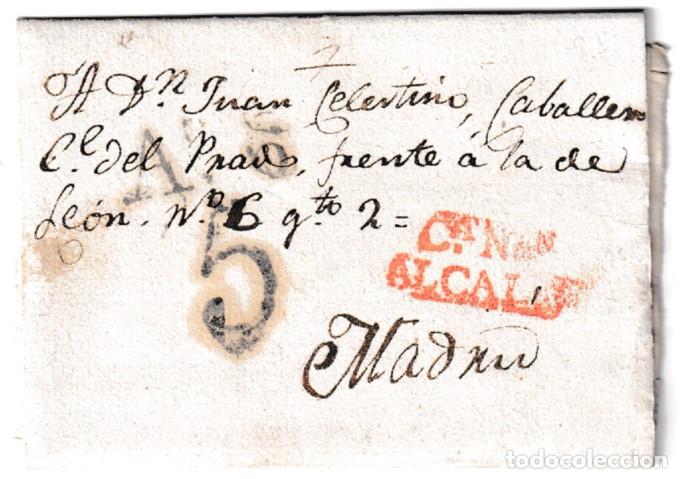 A Dⁿ Juan Celestino, Caballero
C.ᵉ del Prado, frente á la de
León. N.º 6 q.ᵗᵒ 2=
5
Cᴬ Nᵛᴬ
ALCALA
Madrid
todocoleccion.net